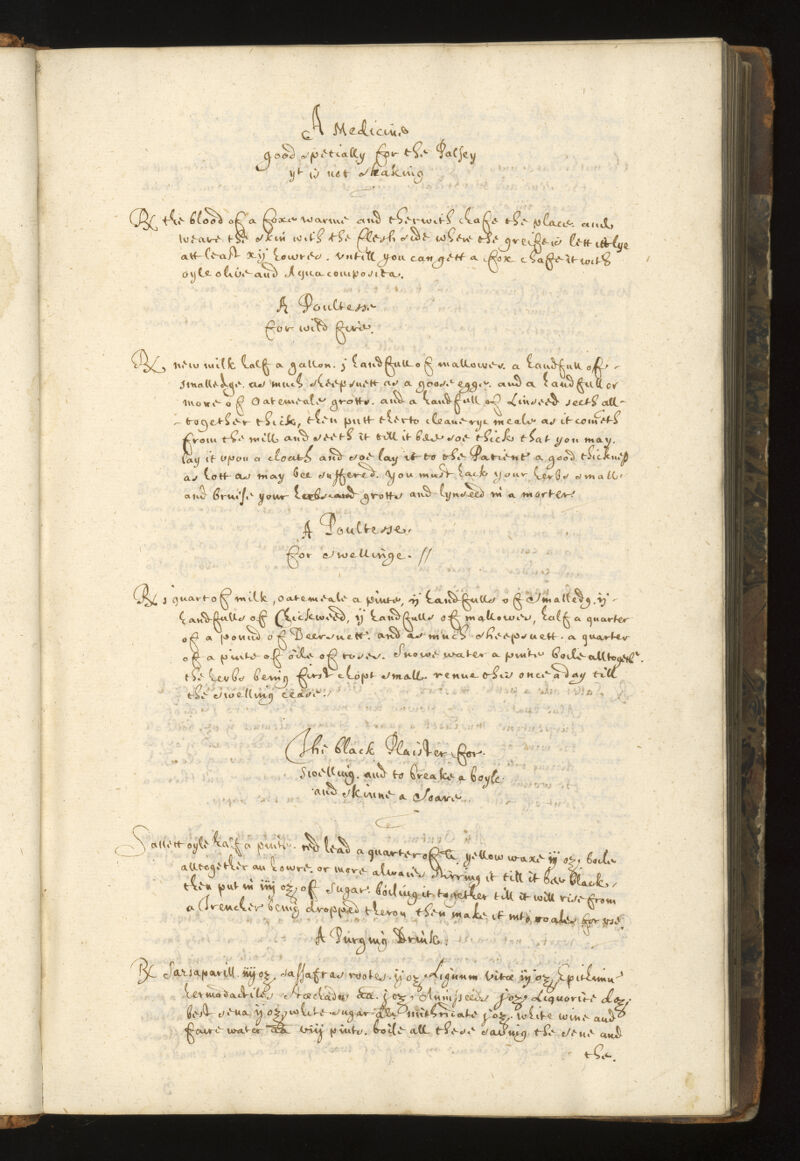 A Medicine
good spetially for the Palsey
yt is not shaking
Rx the blood of a foxe warme and therwith chafe the place. and
weare the skin with the flesh side wher the greife is lett itt lye
att least xij howres. untill you can gett a fox chafe it with
oyle olive and Aqua composita.
A Poultesse
for wild fire.
Rx new milk half a gallon. j handfull of mallowes. a handfull of
smalledge. as much sheepsuett as a goose egge. and a handfull or
more of Oatemeale grotts. and a handfull of Linseed seeth all
together thick, then putt therto cleane rye meale as it cometh
from the mill and seeth it till it bee soe thick that you may.
lay it upon a cloath and soe lay it to the Patient a good thicknes
as hott as may bee suffered. You must hack your herbs small
and bruise your grotts and lynseed in a morter.
A Poultesse
for swellinge. //
Rx j quart of milk, oatemeale a pinte, ij handfulls of Smalledg. ij
handfulls of Chickweed, ij handfulls of mallowes, half a quarter
of a pound of Deersuett. and as much sheepsuett. a quarter
of a pinte of oile of roses. Snowe water a pinte boile alltogether.
the herbs being first chopt small. renue this once a day till
the swelling cease.
The black Plaister for
swelling. and to breake a boyle
and skinne a Soare.
Sallett oyle half a pinte. red lead a quarter of li, yellow waxe iij oz, boile
alltogether an howre. or more alwaies stirring it till it bee black,
then put in iiij oz, of Sugar, boiling it together till it will rise from
a Trencher being dropped theron then make it into roales for use.
A Purging Drink.
Rx Sarsaparill. iiij oz, sassafras rootes. ij oz, Lignum vitæ iij oz, Epithimu
hermodactiles Stæchados aa. j oz, Annisseeds j oz, Liquorice
best sena ij oz, white sugar mithridate j oz. white wine and
faire water aa viij pints. boile all these saving the sene and
the.